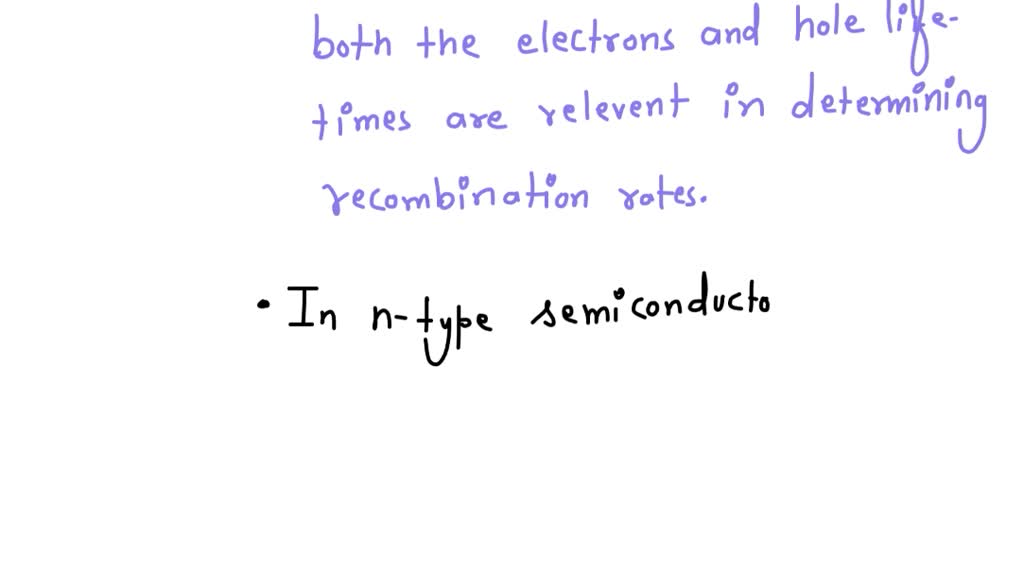 both the electrons and hole life-
times are relevent in determining
recombination rates.
• In n-type semiconducto